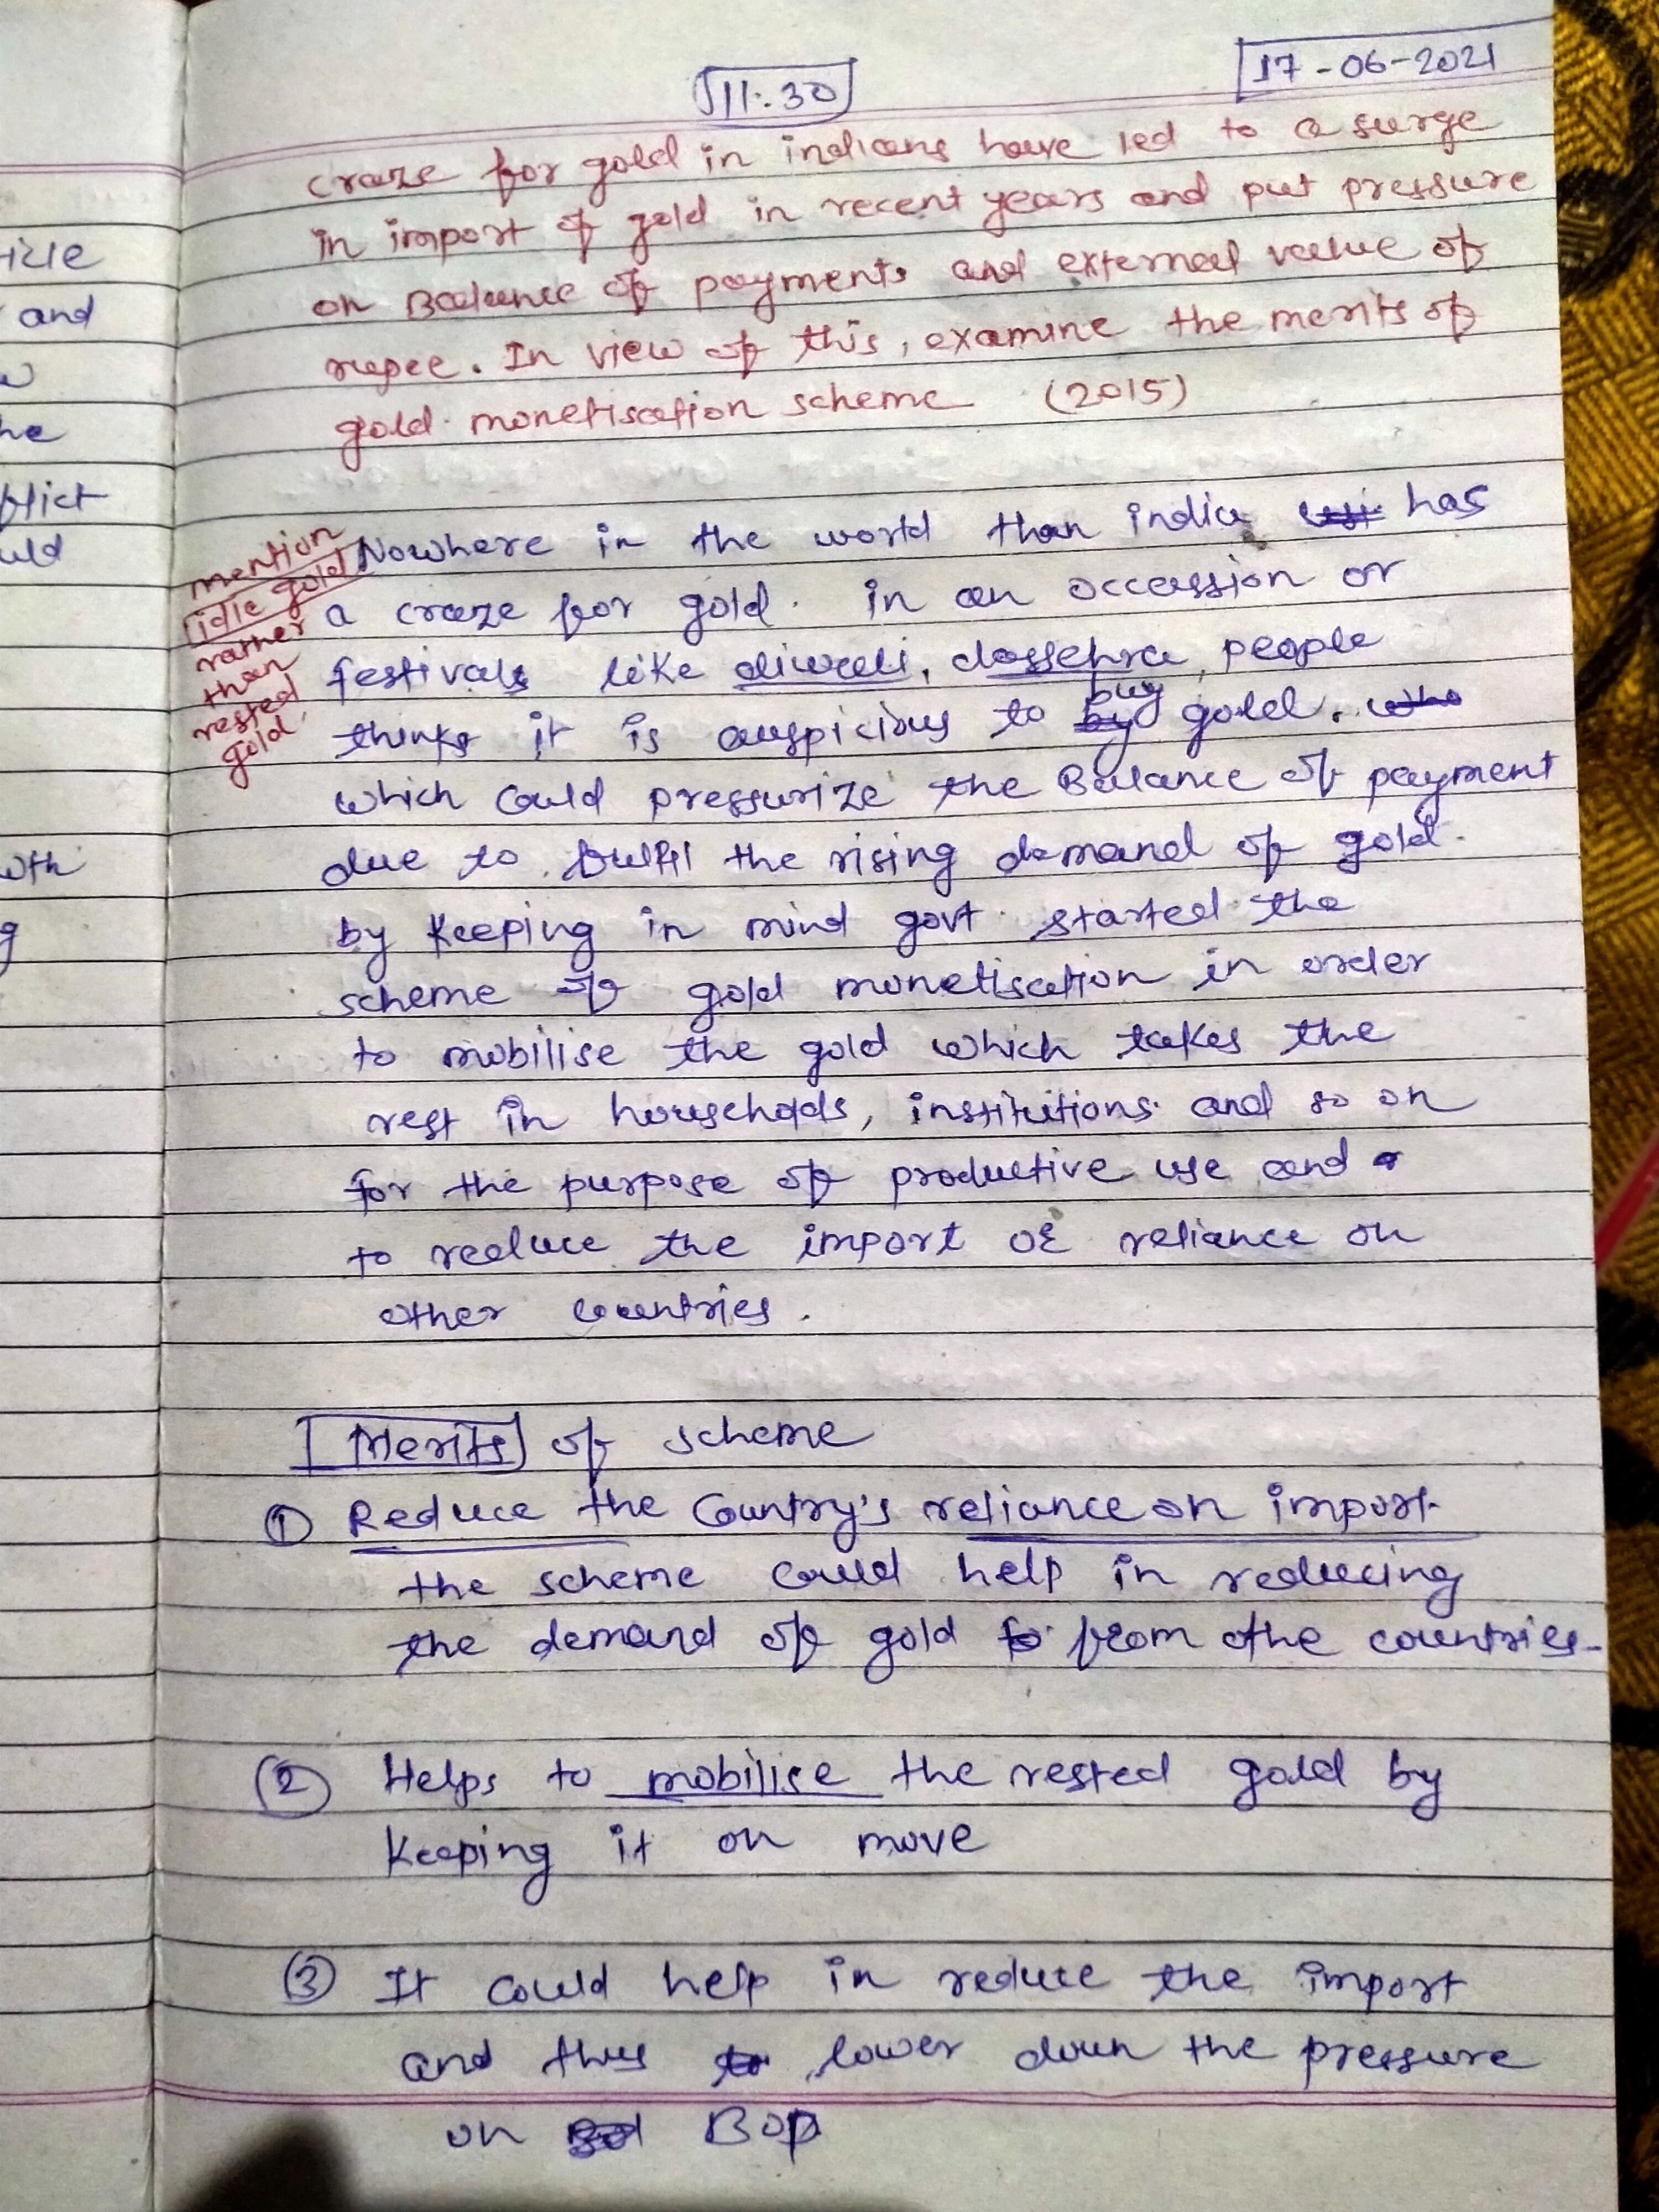 icle
and
he
flict
uld
wth
g
11:30
17-06-2021
craze for gold in indians have led to a surge
in import of gold in recent years and put pressure
on Balance of payments and external value of
rupee. In view of this, examine the merits of
gold monetisation scheme (2015)
mention
idle gold
rather
than
rested
gold
Nowhere in the world than india has
a craze for gold. in an occassion or
festivals like diwali, dassehra, people
thinks it is auspicious to buy gold.
which could pressurize the Balance of payment
due to fulfil the rising demand of gold.
by keeping in mind govt. started the
scheme of gold monetisation in order
to mobilise the gold which takes the
rest in households, institutions and so on
for the purpose of productive use and
to reduce the import or reliance on
other countries.
Merits of scheme
① Reduce the Country's reliance on import.
the scheme could help in reducing
the demand of gold from othe countries.
② Helps to mobilise the rested gold by
keeping it on move
③ It could help in reduce the import
and thus lower down the pressure
on BOP